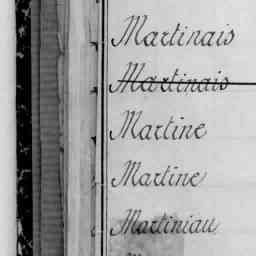 Martinais
Martinais
Martine
Martine
Martiniau